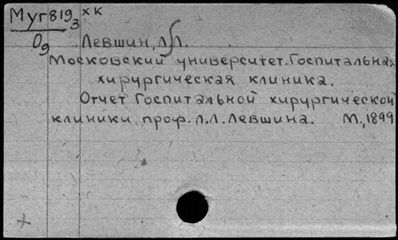 Муг 819₃ хк
О9 Левшин, Л.Л.
Московский университет. Госпитальная
хирургическая клиника.
Отчет Госпитальной хирургической
клиники проф. Л.Л. Левшина. М., 1899